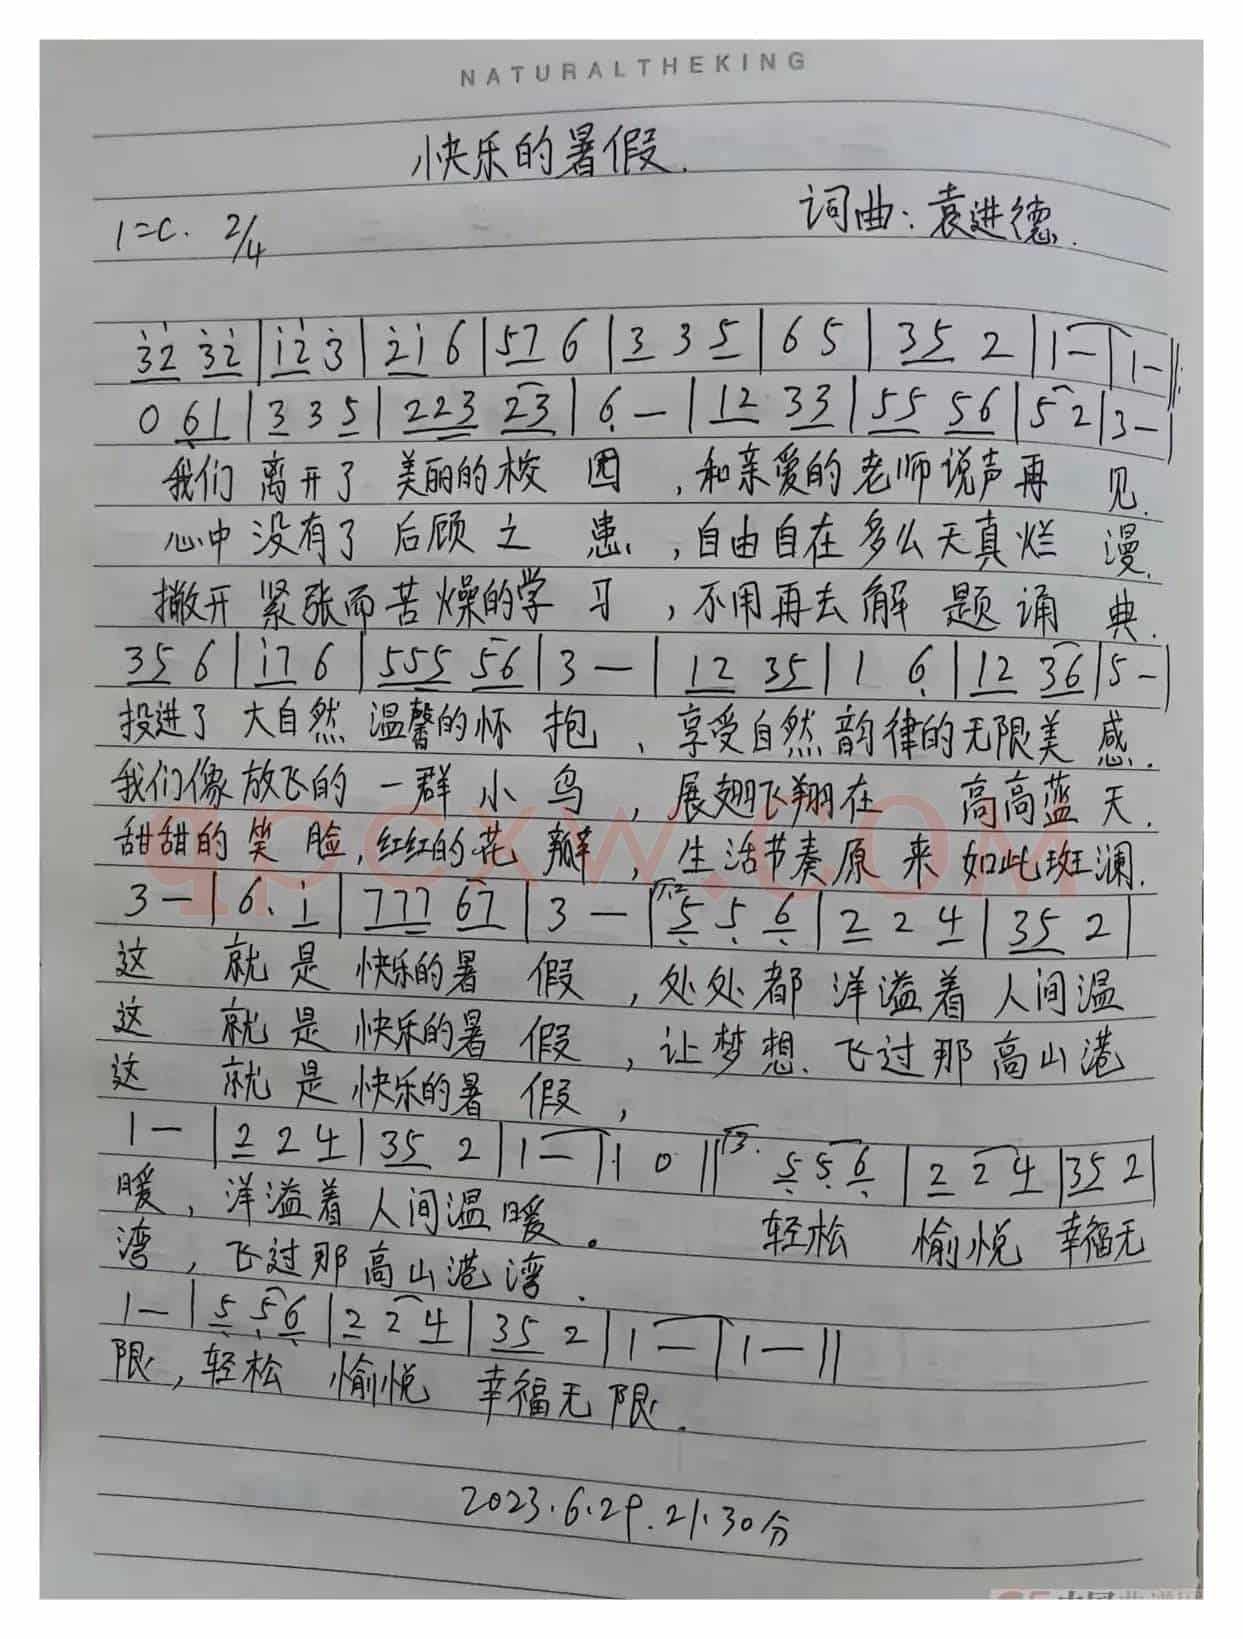 NATURALTHEKING
快乐的暑假.
1=C. 2/4 词曲:袁进德.
3̇2̇ 3̇2̇ | 1̇2̇ 3̇ | 2̇1̇ 6 | 57 6 | 3 3 5 | 6 5 | 35 2 | 1 — | 1 — :||
0 61 | 3 3 5 | 223 23 | 6 — | 12 33 | 55 56 | 5 2 | 3 — |
我们 离开了 美丽的校 园 ,和亲爱的老师说声再 见.
心中没有了 后顾之 患,自由自在多么天真烂 漫.
撇开紧张而苦燥的学 习 ,不用再去解 题诵 典.
35 6 | 1̇7 6 | 555 56 | 3 — | 12 35 | 1 6 | 12 36 | 5 — |
投进了 大自然 温馨的怀 抱 、享受自然韵律的无限美 感.
我们像放飞的 一群小 鸟 ,展翅飞翔在 高高蓝 天.
甜甜的笑 脸,红红的花 瓣 ,生活节奏原 来如此斑斓.
qpcxw.com
3 — | 6. 1̇ | 777 67 | 3 — | 5 5 6 | 2 2 4 | 35 2 |
这 就是 快乐的暑 假 ,处处都 洋溢着 人间温
这 就是 快乐的暑 假 ,让梦想、飞过那 高山港
这 就是 快乐的暑 假 ,
1 — | 2 2 4 | 35 2 | 1 — | 1 0 || 3. 5 5 6 | 2 2 4 | 35 2 |
暖,洋溢着 人间温暖。 轻松 愉悦 幸福无
湾,飞过那高山港湾.
1 — | 5 5 6 | 2 2 4 | 35 2 | 1 — | 1 — ||
限,轻松 愉悦 幸福无限.
2023.6.29.21.30分